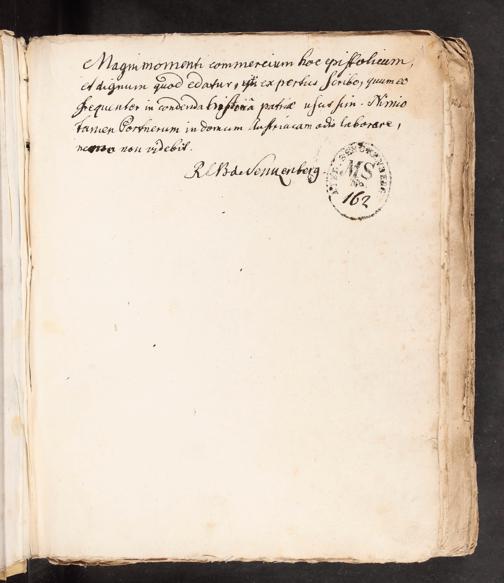 Magni momenti commercium hoc epistolicum,
et dignum quod edatur, experties scribo, quum eo
frequenter in condenda historiâ patriæ usus sim. Nimio
tamen Portnerum in domum Austriacam odio laborare,
nemo non videbit.
R L B de Senckenberg.
MS
No
162